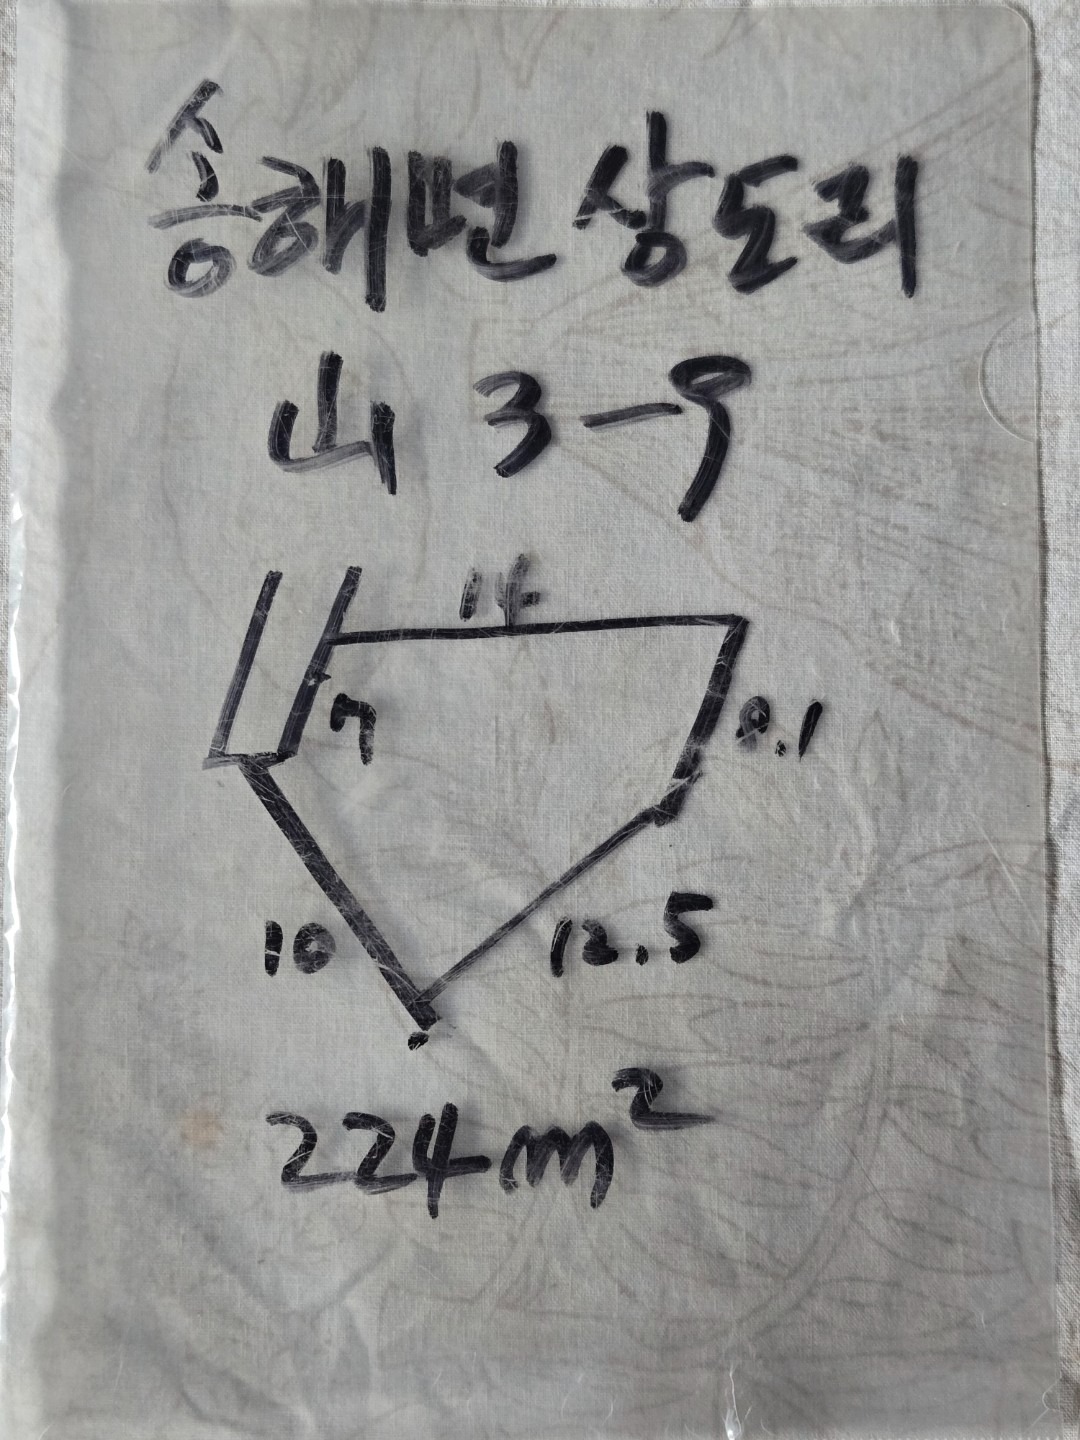 송해면 상도리
山 3-9
14
7
8.1
10
12.5
224m²